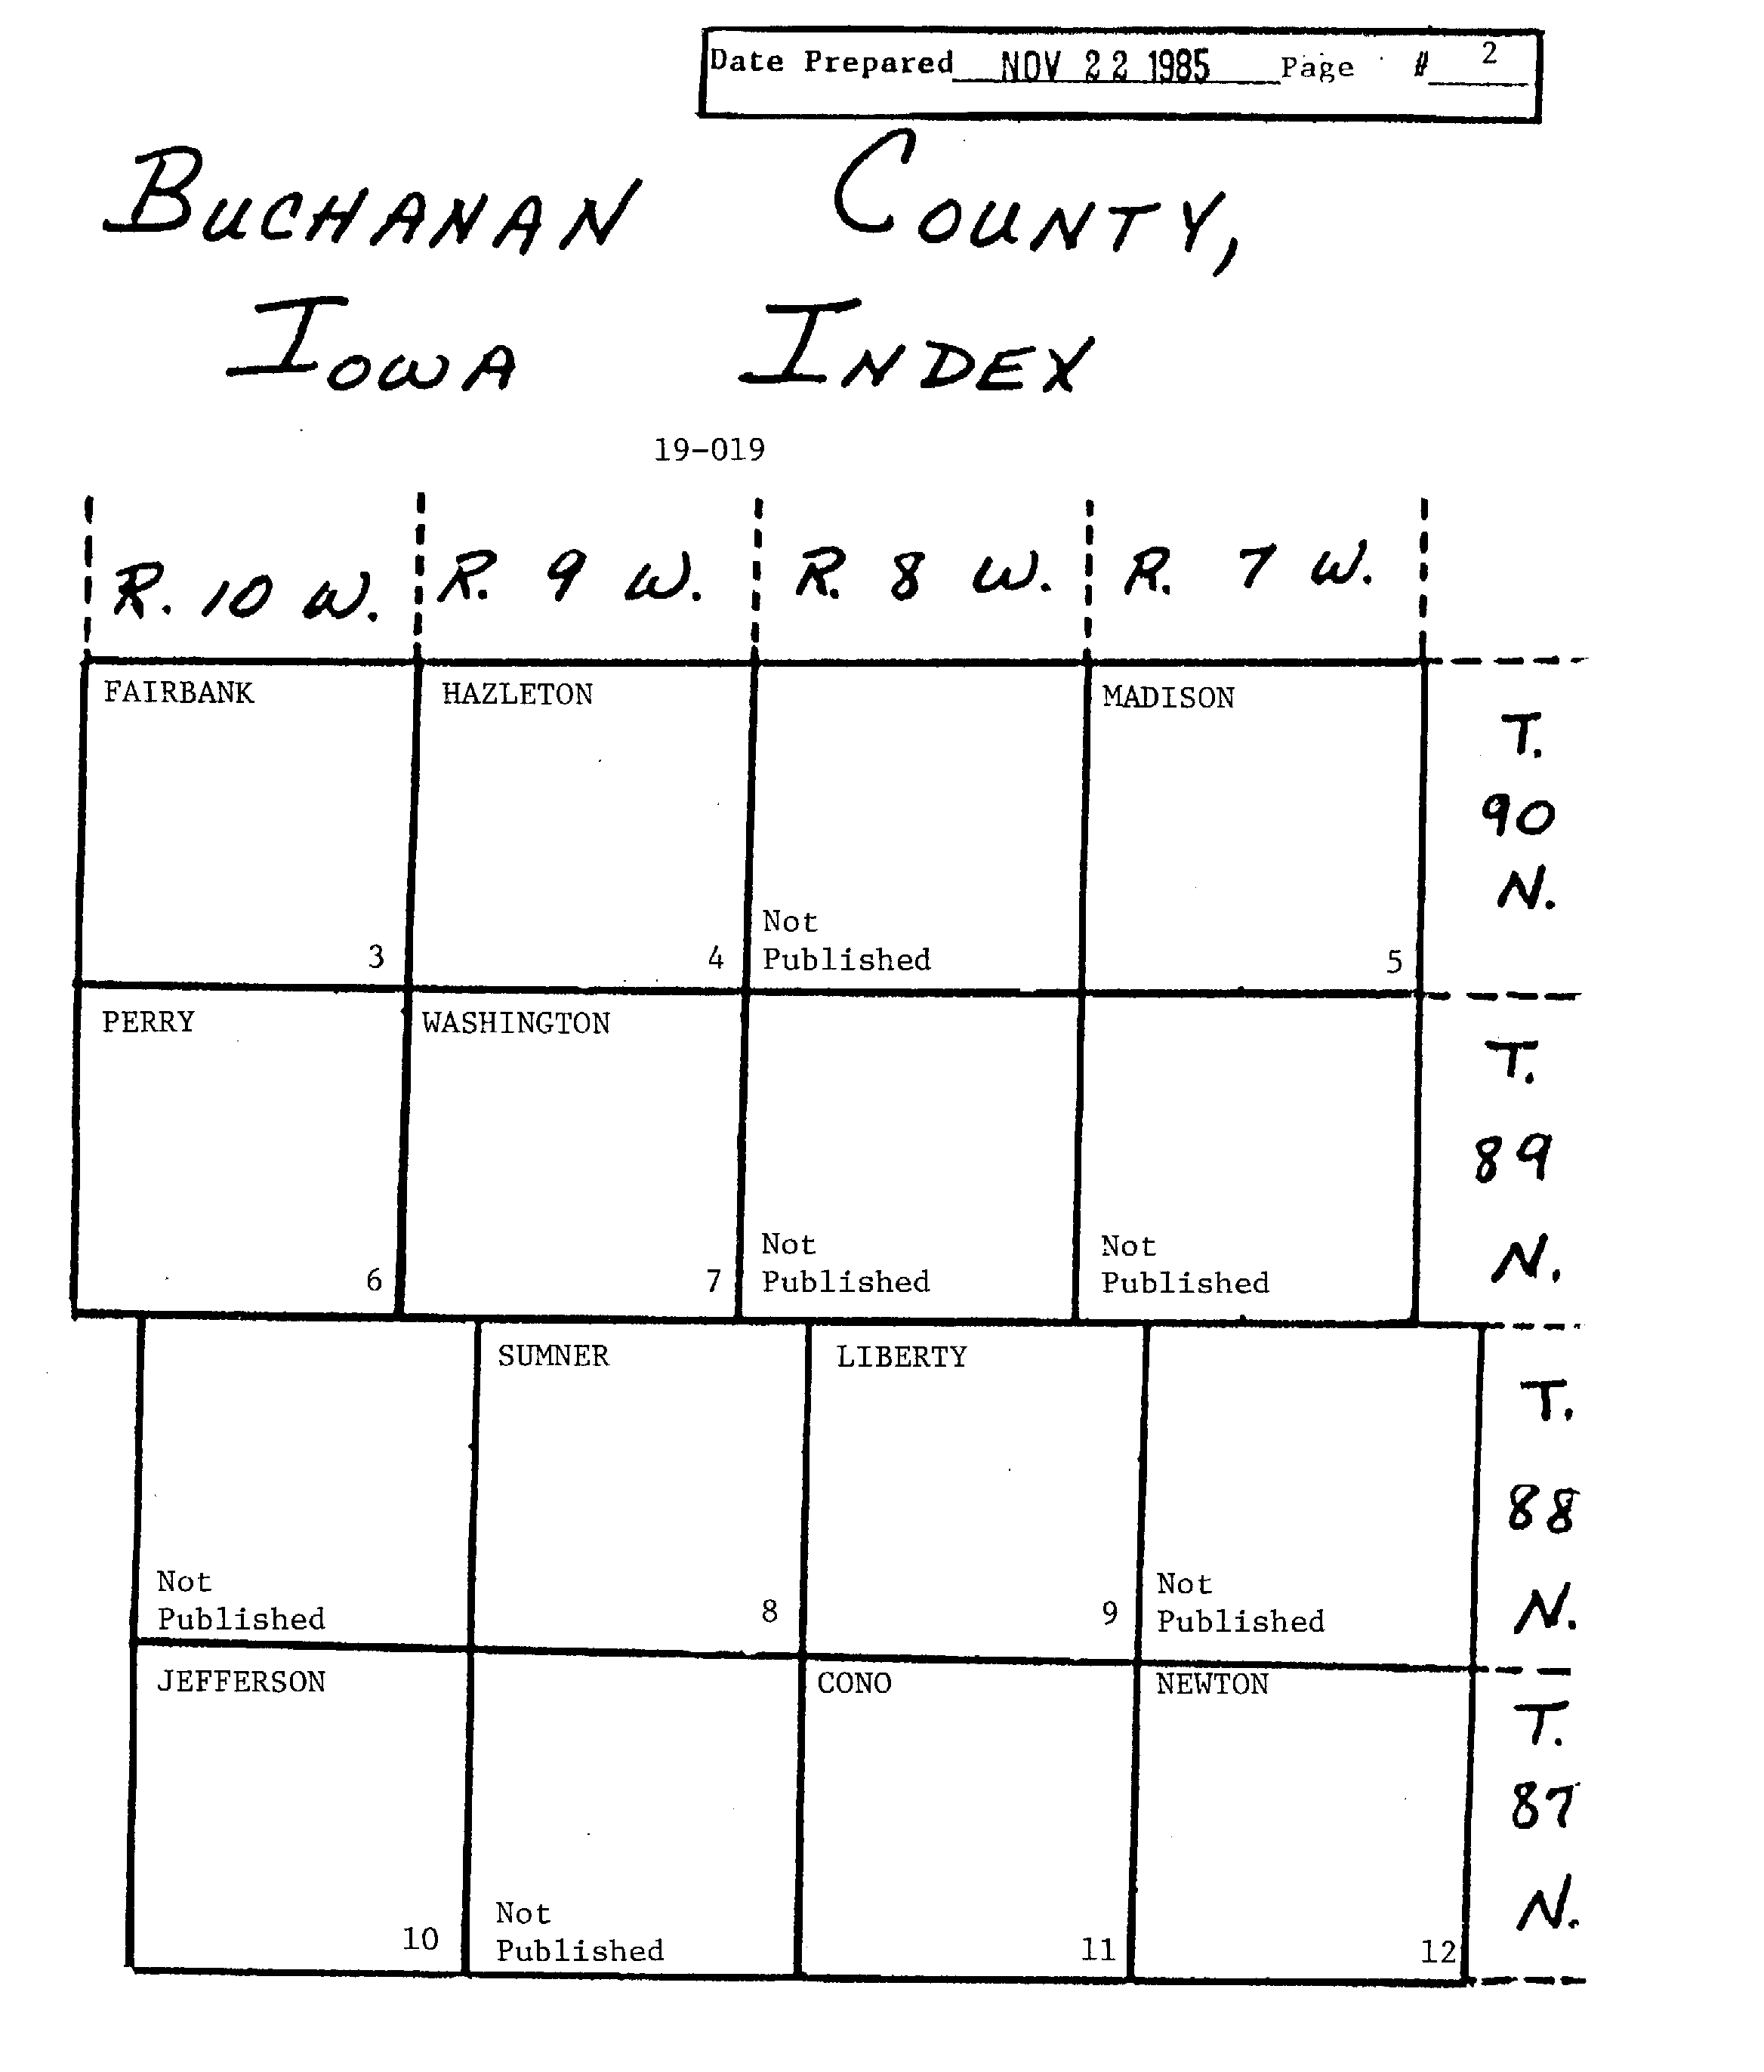 Date Prepared NOV 22 1985 Page # 2
BUCHANAN COUNTY,
IOWA INDEX
19-019
R. 10 W. R. 9 W. R. 8 W. R. 7 W.
FAIRBANK HAZLETON MADISON
T.
90
N.
Not
3 4 Published 5
PERRY WASHINGTON
T.
89
N.
Not Not
6 7 Published Published
SUMNER LIBERTY
T.
88
N.
Not Not
Published 8 9 Published
JEFFERSON CONO NEWTON
T.
87
N.
Not
10 Published 11 12